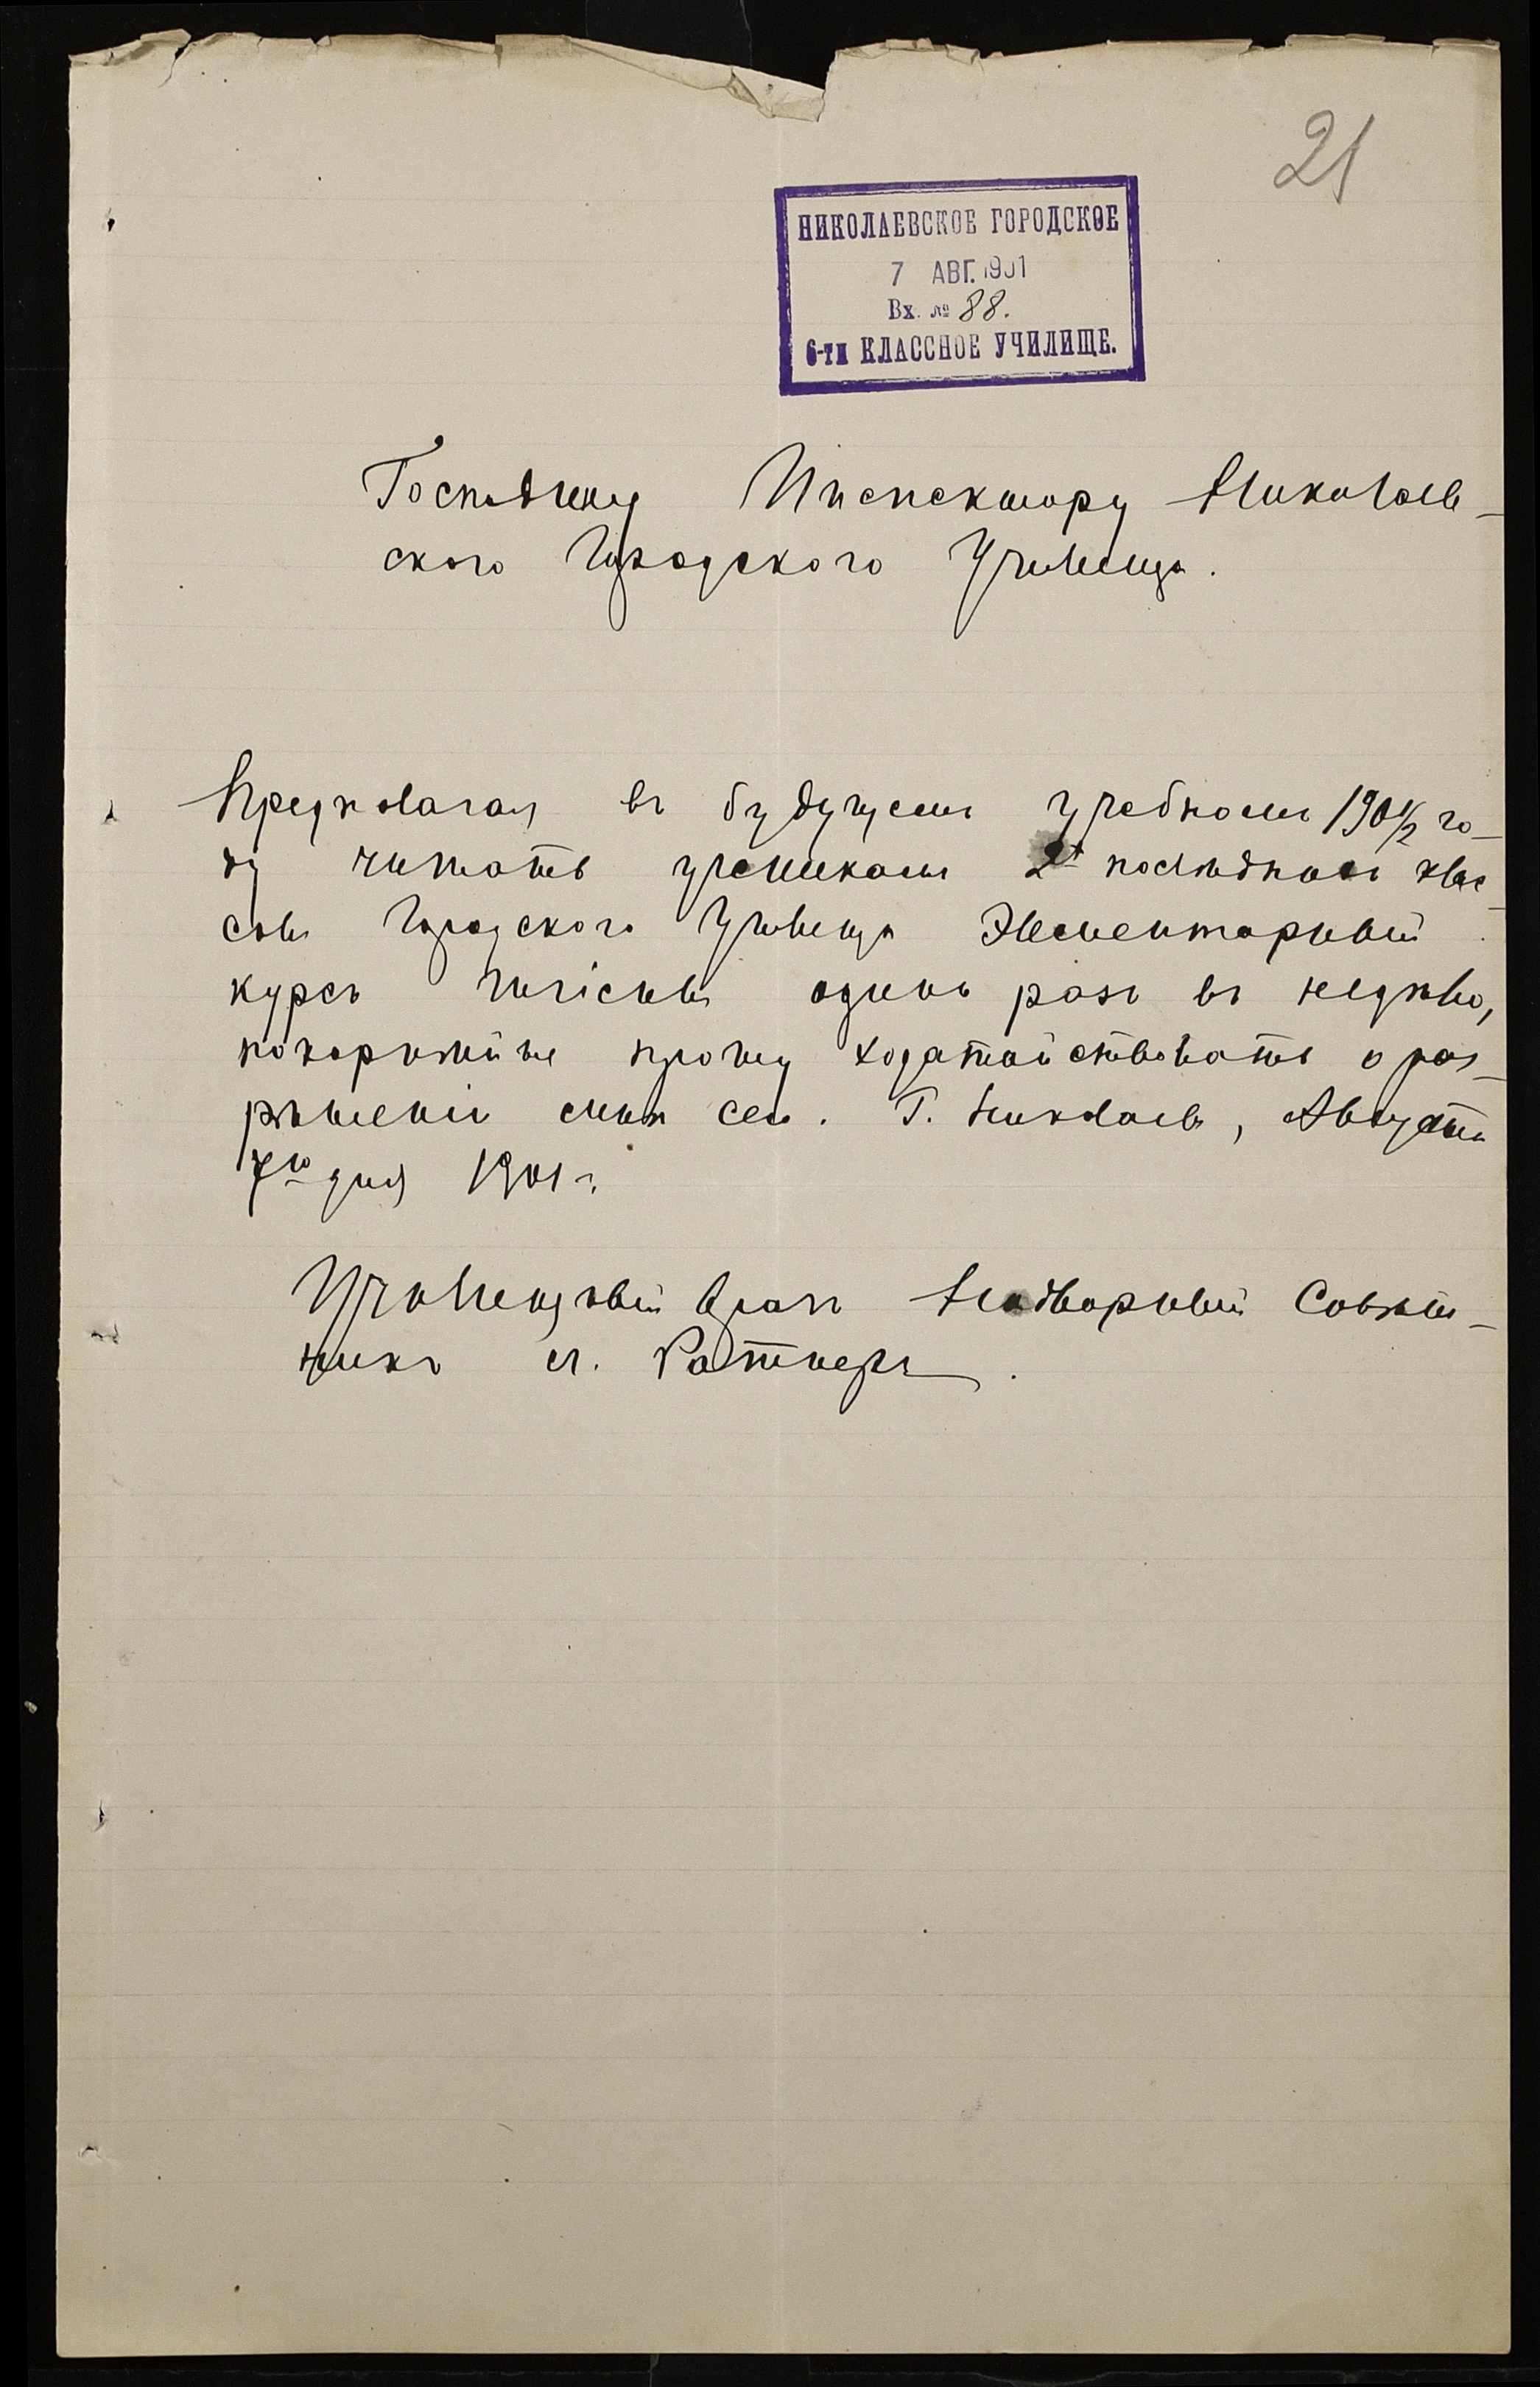 21
НИКОЛАЕВСКОЕ ГОРОДСКОЕ
7 АВГ. 1901
Вх. № 88.
6-ти КЛАССНОЕ УЧИЛИЩЕ.
Господину Инспектору Николаев-
ского Городского Училища.
Предполагая въ будущемъ учебномъ 1901/2 го-
ду читать ученикамъ 2хъ послѣднихъ клас-
совъ Городского Училища Элементарный
курсъ гигіены одинъ разъ въ недѣлю,
покорнѣйше прошу ходатайствовать о раз-
рѣшеніи мнѣ сего. Г. Николаевъ, Августа
7го дня 1901 г.
Училищный врачъ Надворный Совѣт-
никъ М. Ратнеръ.